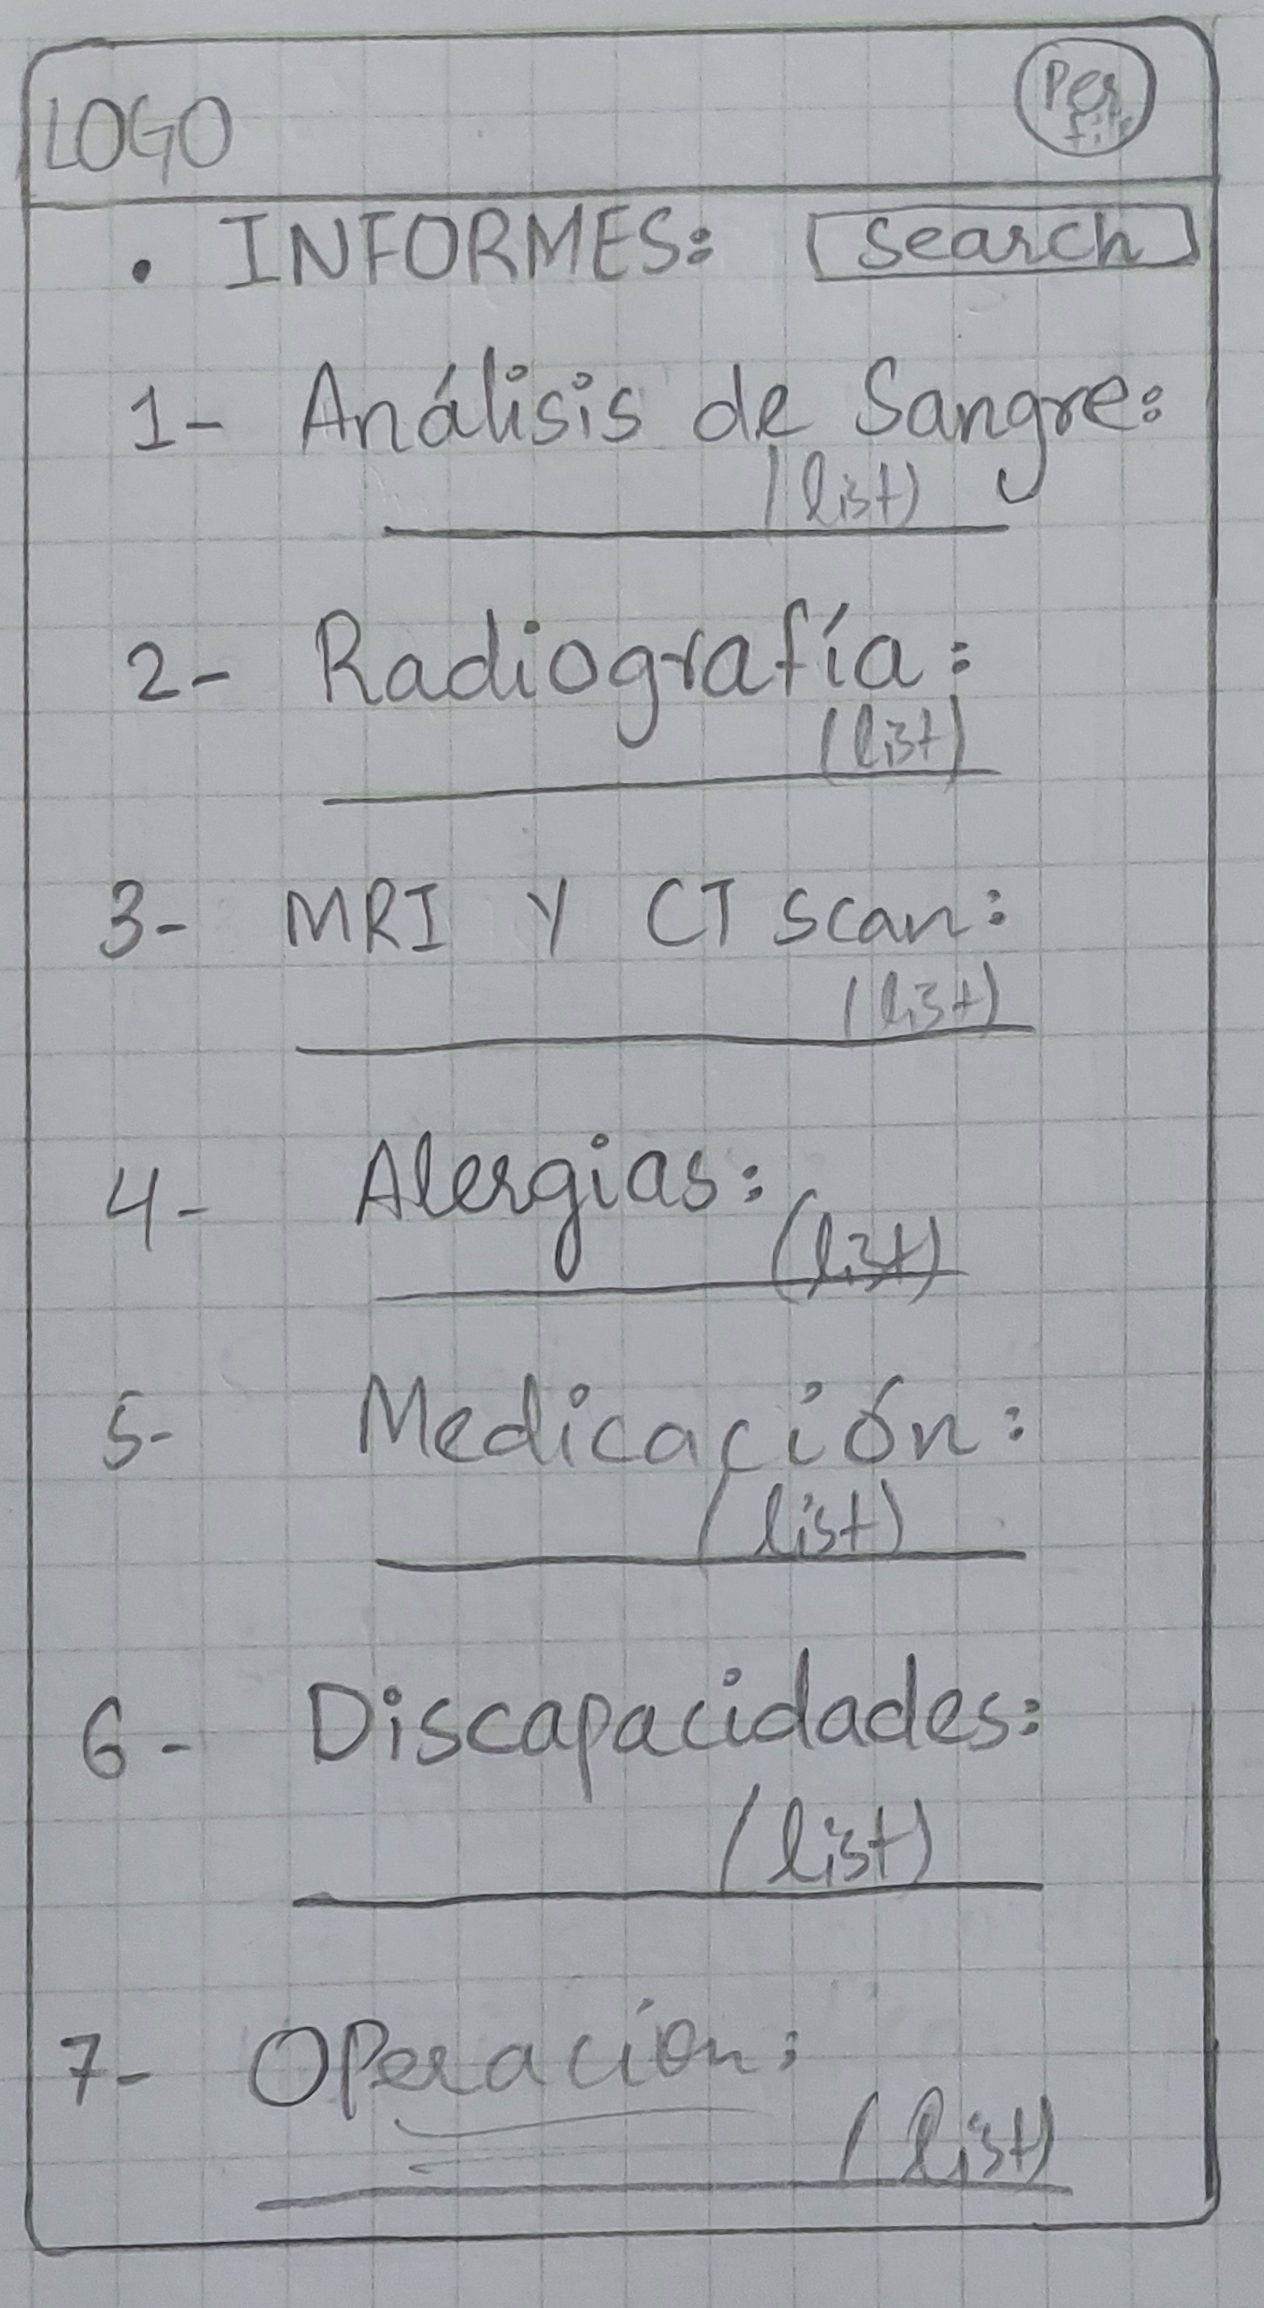 LOGO
Perfil
• INFORMES: Search
1- Análisis de Sangre:
(list)
2- Radiografía:
(list)
3- MRI Y CT Scan:
(list)
4- Alergias:
(list)
5- Medicación:
(list)
6- Discapacidades:
(list)
7- Operación:
(list)